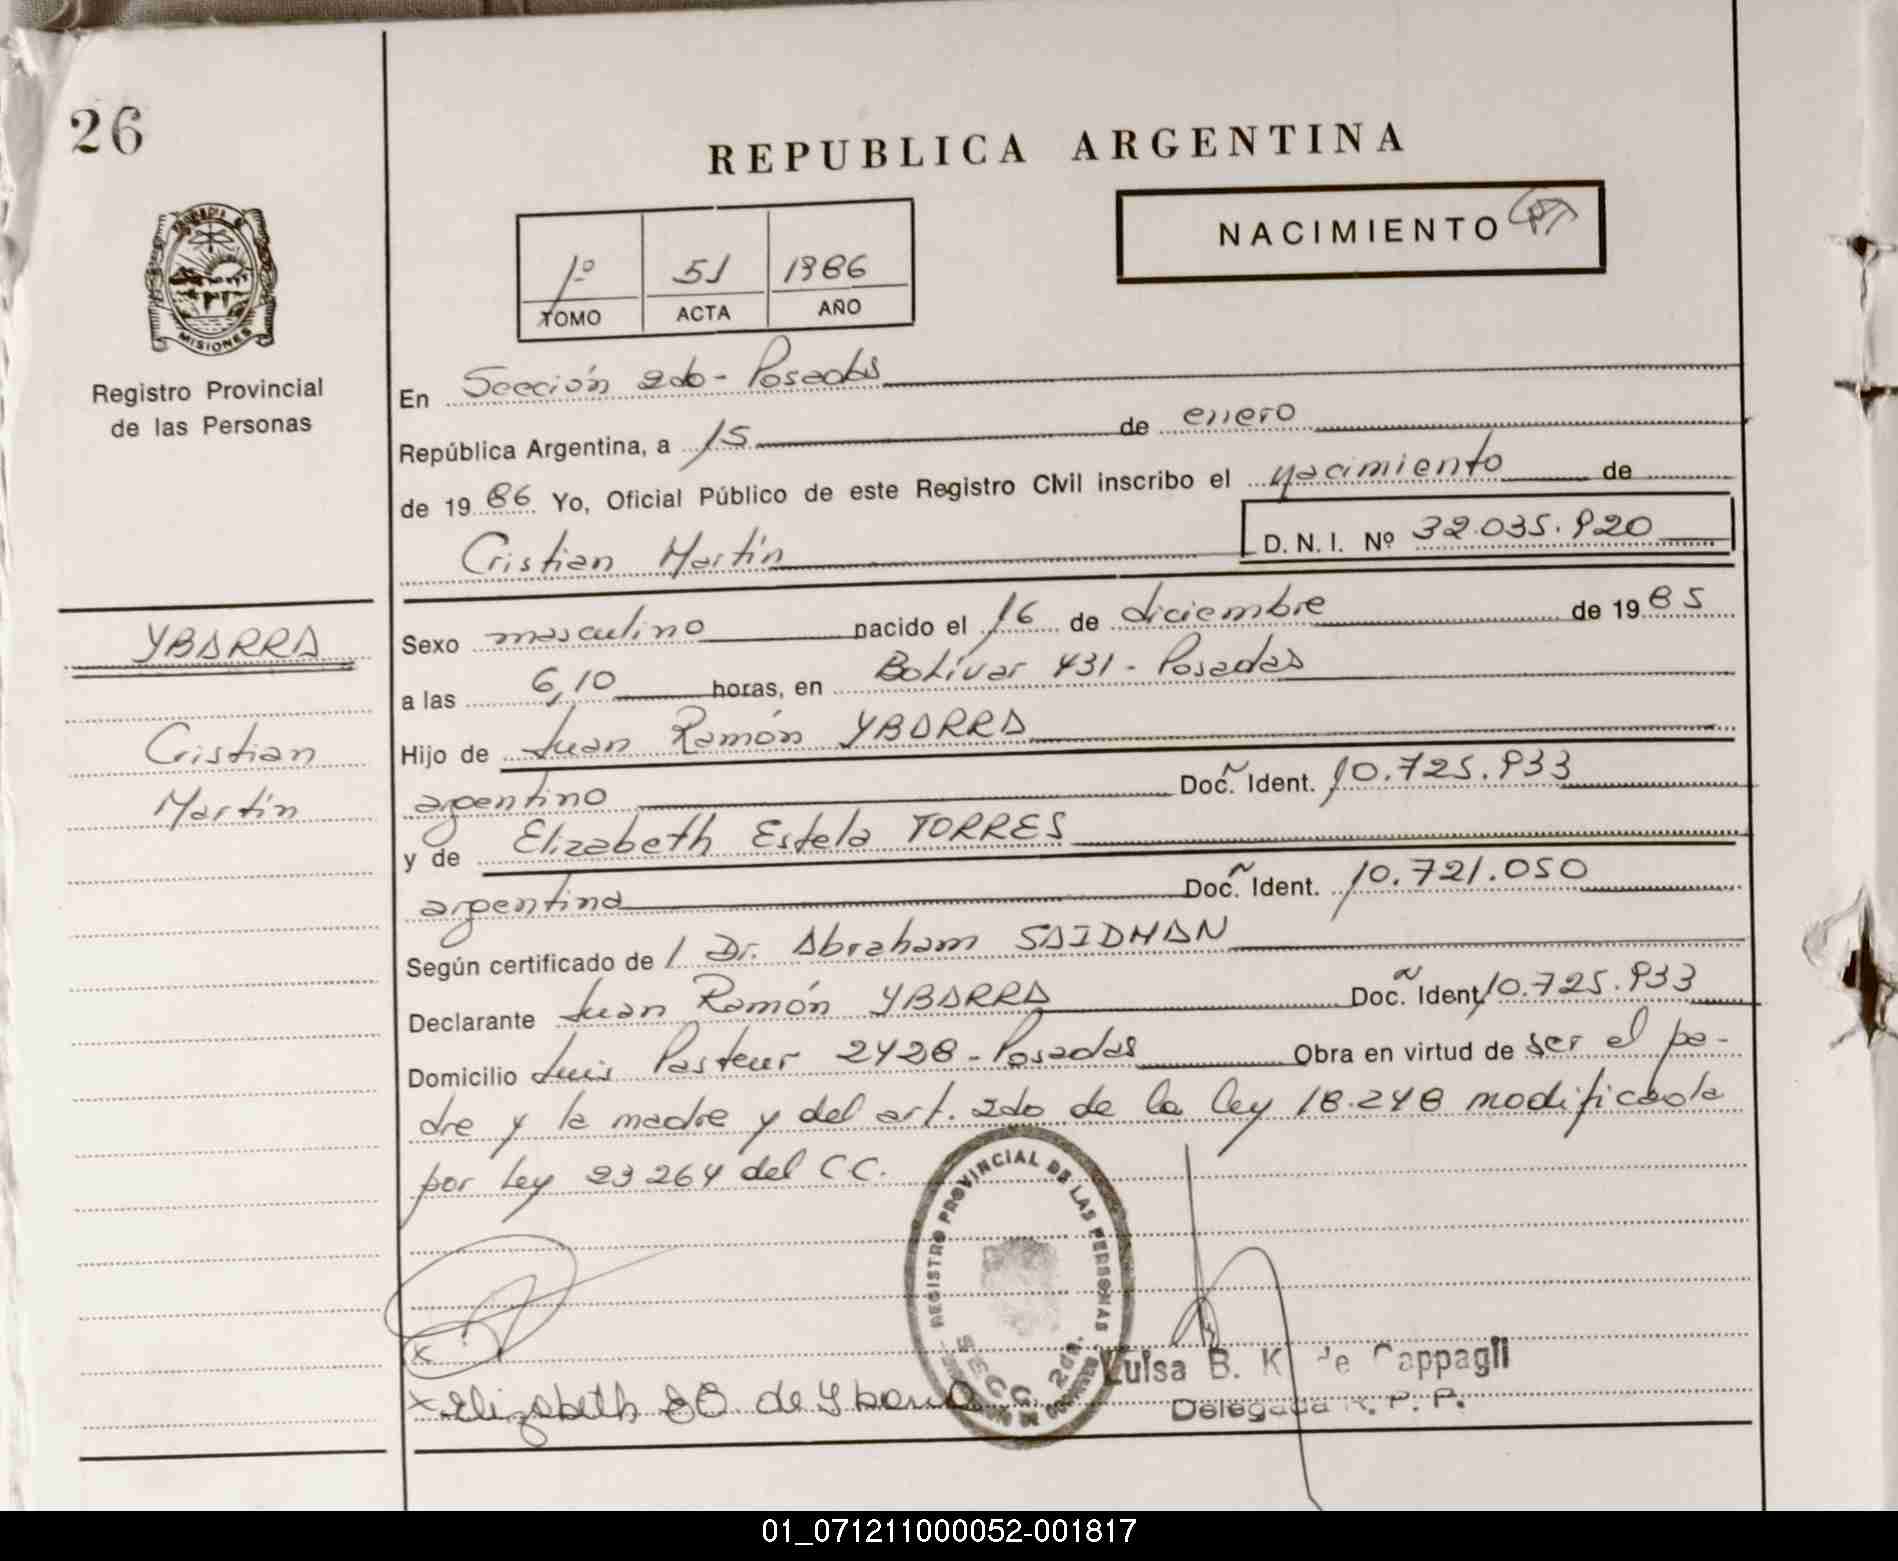 26
REPUBLICA ARGENTINA
NACIMIENTO
1º 51 1986
TOMO ACTA AÑO
MISIONES
Registro Provincial
de las Personas
En Sección 2do - Posadas
República Argentina, a 15 de enero
de 1986 Yo, Oficial Público de este Registro Civil inscribo el nacimiento de
Cristian Martín D. N. I. Nº 32.035.920
YBARRA
Cristian
Martín
Sexo masculino nacido el 16 de diciembre de 1985
a las 6,10 horas, en Bolívar 431 - Posadas
Hijo de Juan Ramón YBARRA
argentino Doc. Ident. 10.725.933
y de Elizabeth Estela TORRES
argentina Doc. Ident. 10.721.050
Según certificado de / Dr. Abraham SAIDMAN
Declarante Juan Ramón YBARRA Doc. Ident. 10.725.933
Domicilio Luis Pasteur 2428 - Posadas Obra en virtud de ser el pa-
dre y la madre y del art. 2do de la ley 18.248 modificada
por ley 23264 del C C.
REGISTRO PROVINCIAL DE LAS PERSONAS
SECC. 2da.
x
x Elizabeth de Ybarra
Luisa B. K. de Cappagli
Delegada R. P. P.
01_071211000052-001817